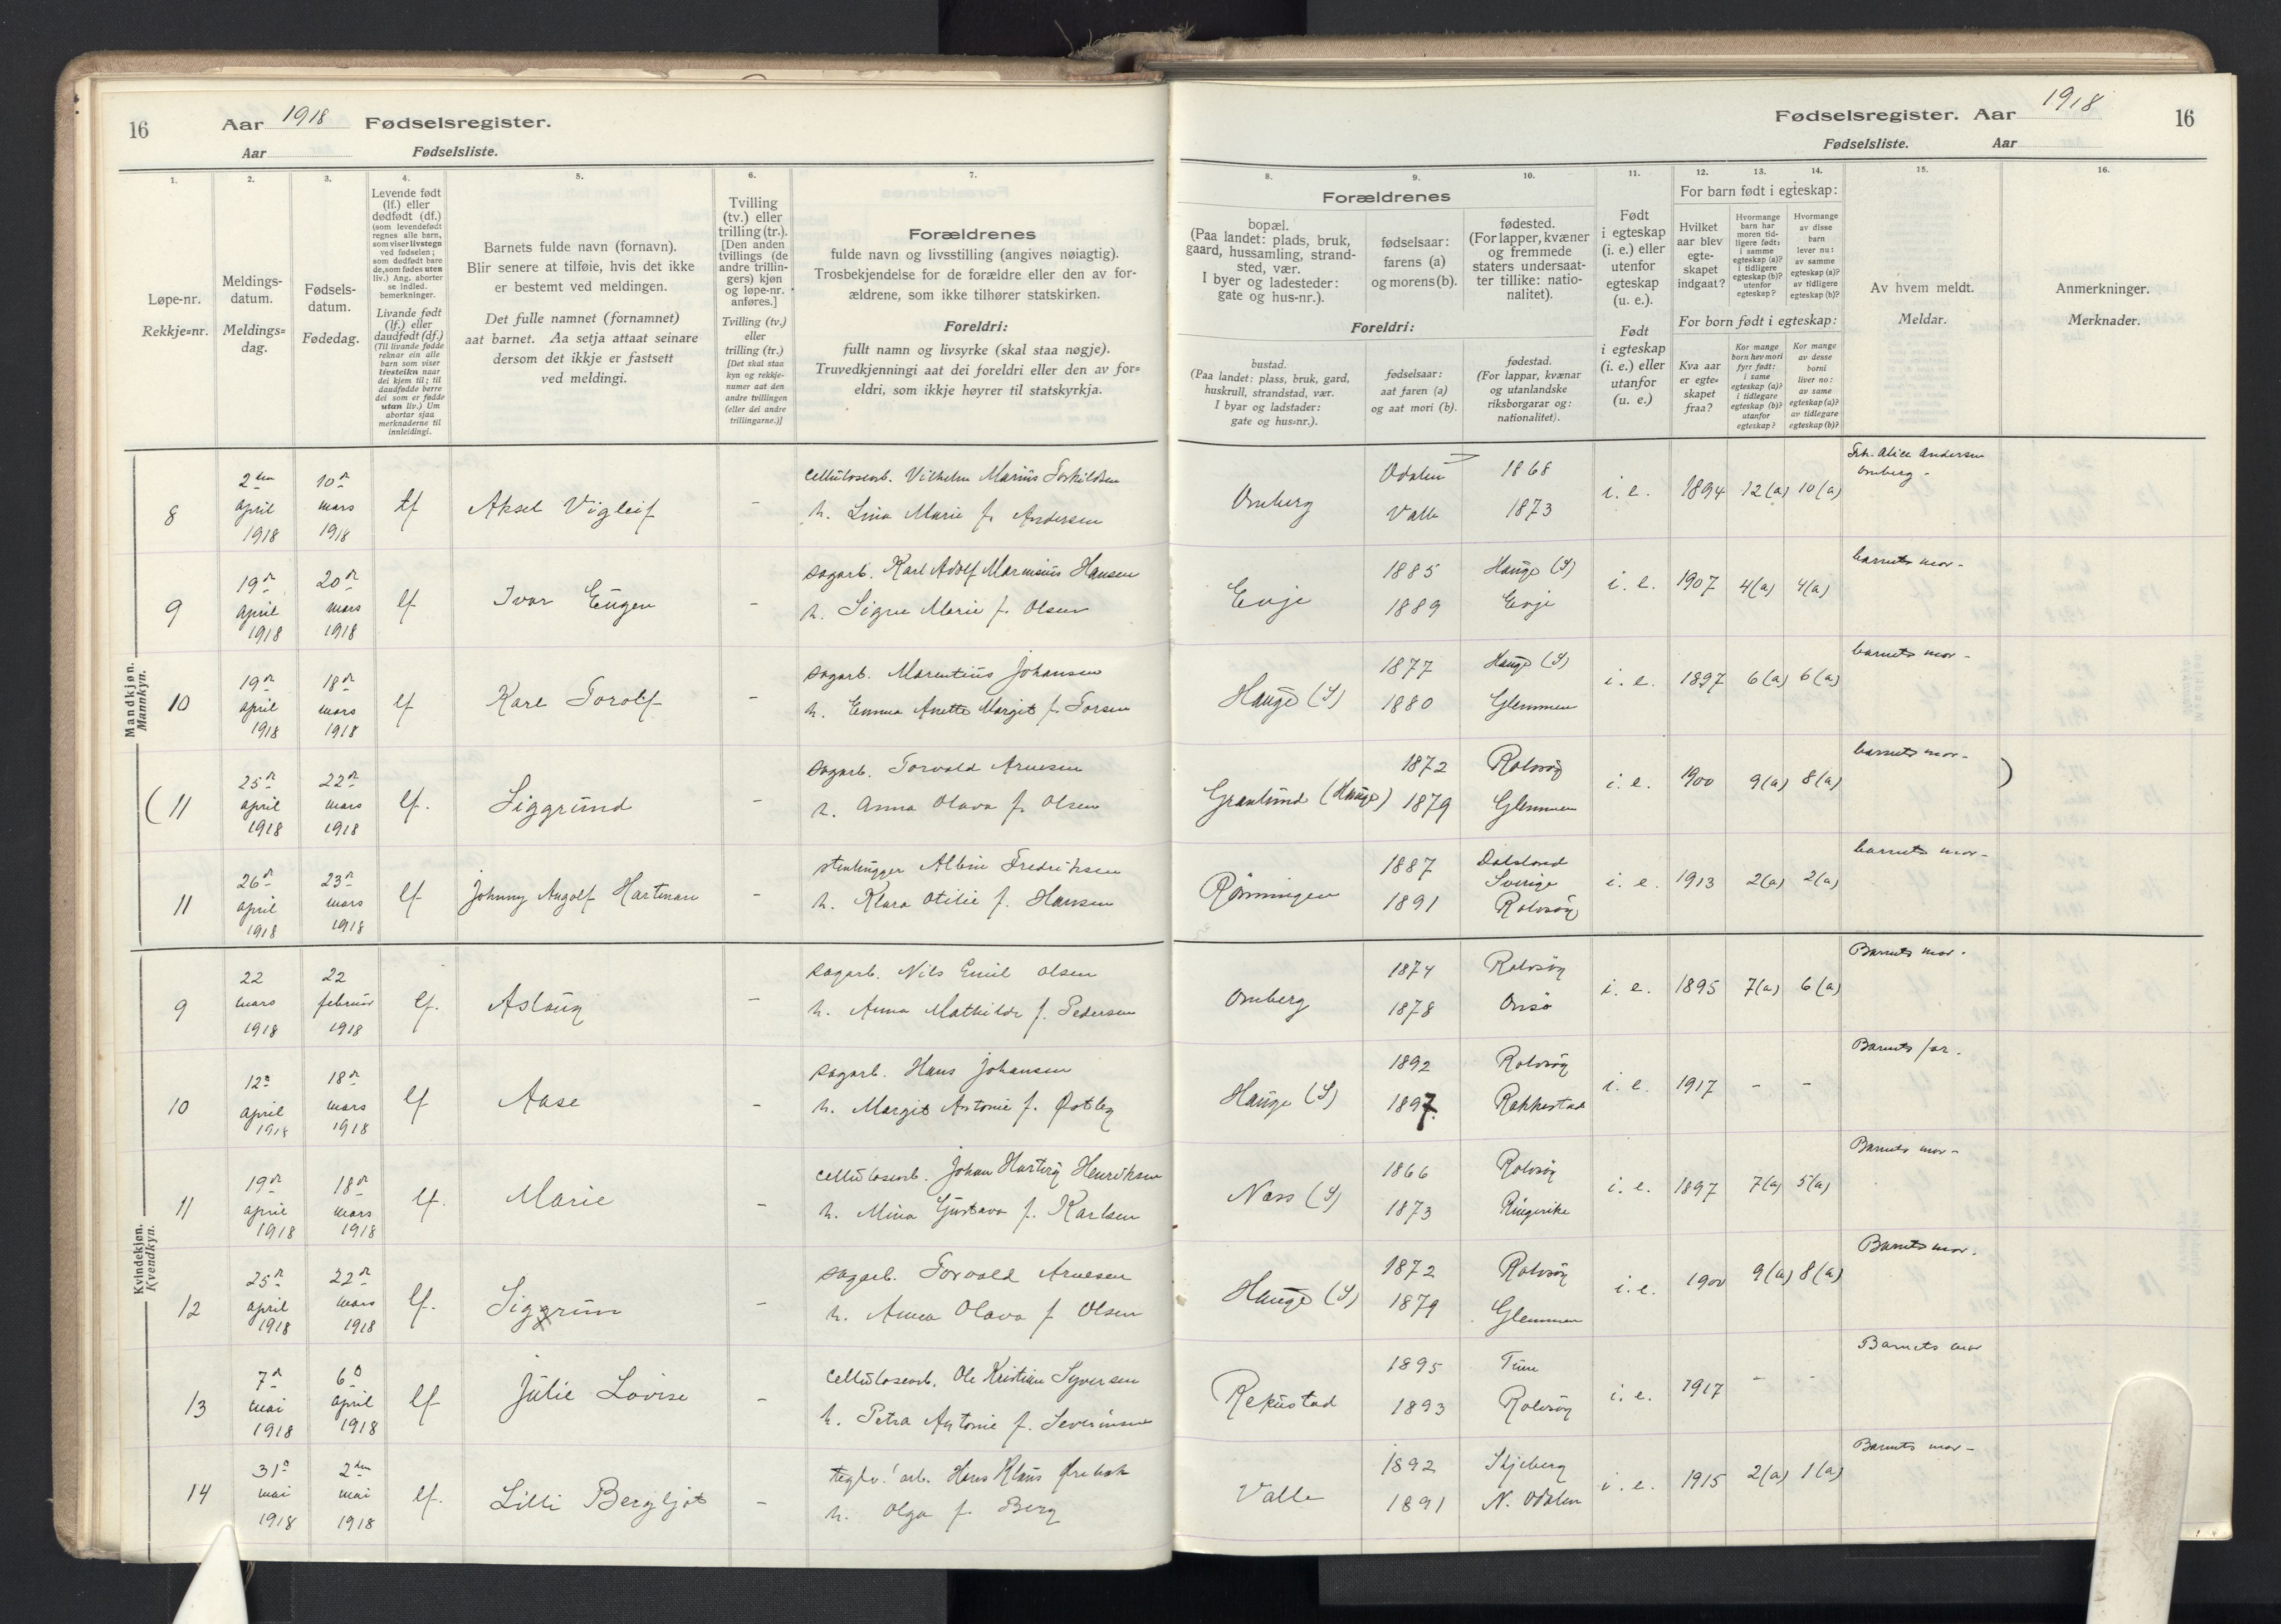 16
Aar 1918 Fødselsregister.
Aar Fødselsliste.
1.
2.
3.
4.
5.
6.
7.
Løpe-nr.
Rekkje=nr.
Meldings-
datum.
Meldings=
dag.
Fødsels-
datum.
Fødedag.
Levende født
(lf.) eller
dødfødt (df.)
(som levendefødt
regnes alle barn,
som viser livstegn
ved fødselen;
som dødfødt bare
de, som fødes uten
liv.) Ang. aborter
se indled.
bemerkninger.
Livande født
(lf.) eller
daudfødt (df.)
(Til livande fødde
reknar ein alle
barn som viser
livsteikn naar
dei kjem til; til
daudfødde berre
dei som er fødde
utan liv.) Um
abortar sjaa
merknaderne til
innleidingi.
Barnets fulde navn (fornavn).
Blir senere at tilføie, hvis det ikke
er bestemt ved meldingen.
Det fulle namnet (fornamnet)
aat barnet. Aa setja attaat seinare
dersom det ikkje er fastsett
ved meldingi.
Tvilling
(tv.) eller
trilling (tr.).
[Den anden
tvillings (de
andre trillin-
gers) kjøn
og løpe-nr.
anføres.]
Tvilling (tv.)
eller
trilling (tr.)
[Det skal staa
kyn og rekkje-
numer aat den
andre tvillingen
(eller dei andre
trillingarne.)]
Forældrenes
fulde navn og livsstilling (angives nøiagtig).
Trosbekjendelse for de forældre eller den av for-
ældrene, som ikke tilhører statskirken.
Foreldri:
fullt namn og livsyrke (skal staa nøgje).
Truvedkjenningi aat dei foreldri eller den av for=
eldri, som ikkje høyrer til statskyrkja.
Mandkjøn.
Mannkyn.
8 2den april 1918 10de mars 1918 lf Aksel Vigleif - Cellulosearb. Vilhelm Marius Torkildsen
h. Lina Marie f. Andersen
9 19de april 1918 20de mars 1918 lf Ivar Eugen - Sagarb. Karl Adolf Marensius Hansen
h. Signe Marie f. Olsen
10 19de april 1918 18de mars 1918 lf Karl Torolf - Sagarb. Marentius Johansen
h. Emma Anette Margit f. Torsen
(11 25de april 1918 22de mars 1918 lf. Siggrund - Sagarb. Torvald Arnesen
h. Anna Olava f. Olsen
11 26de april 1918 23de mars 1918 lf Johnny Angolf Hartman - Stenhugger Albin Fredriksen
h. Klara Otilie f. Hansen
Kvindekjøn.
Kvendkyn.
9 22 mars 1918 22 februar 1918 lf. Aslaug - Sagarb. Nils Emil Olsen
h. Anna Mathilde f. Pedersen
10 12te april 1918 18de mars 1918 lf Aase - Sagarb. Hans Johansen
h. Margit Antonie f. Østby
11 19de april 1918 18de mars 1918 lf. Marie - Cellulosearb. Johan Hartvig Henriksen
h. Mina Gustava f. Karlsen
12 25de april 1918 22de mars 1918 lf. Siggrun - Sagarb. Torvald Arnesen
h. Anna Olava f. Olsen
13 7de mai 1918 6te april 1918 lf Julie Lovise - Cellulosearb. Ole Kristian Syversen
h. Petra Antonie f. Severinsen
14 31te mai 1918 2den mai 1918 lf. Lilli Bergljot - Teglv. arb. Hans Klaus Ørebæk
h. Olga f. Berg
Fødselsregister. Aar 1918
16
Fødselsliste. Aar
8.
9.
10.
11.
12.
13.
14.
15.
16.
Forældrenes
bopæl.
(Paa landet: plads, bruk,
gaard, hussamling, strand-
sted, vær.
I byer og ladesteder:
gate og hus-nr.).
fødselsaar:
farens (a)
og morens (b).
fødested.
(For lapper, kvæner
og fremmede
staters undersaat-
ter tillike: natio-
nalitet).
Foreldri:
bustad.
(Paa landet: plass, bruk, gard,
huskrull, strandstad, vær.
I byar og ladstader:
gate og hus=nr.).
fødselsaar:
aat faren (a)
og aat mori (b).
fødestad.
(For lappar, kvænar
og utanlandske
riksborgarar og:
nationalitet).
Født
i egteskap
(i. e.) eller
utenfor
egteskap
(u. e.).
Født
i egteskap
(i. e.) eller
utanfor
(u. e.)
For barn født i egteskap:
Hvilket
aar blev
egte-
skapet
indgaat?
Hvormange
barn har
moren tid-
ligere født:
i samme
egteskap (a)?
i tidligere
egteskap (b)?
utenfor
egteskap?
Hvormange
av disse
barn
lever nu:
av samme
egteskap (a)?
av tidligere
egteskap (b)?
For born født i egteskap:
Kva aar
er egte=
skapet
fraa?
Kor mange
born hev mori
fyrr født:
i same
egteskap (a)?
i tidlegare
egteskap (b)?
utanfor
egteskap?
Kor mange
av desse
borni
liver no:
av same
egteskap (a)?
av tidlegare
egteskap (b)?
Av hvem meldt.
Meldar.
Anmerkninger.
Merknader.
Omberg Odalen 1868 i. e. 1894 12(a) 10(a) Frk. Alice Andersen
Valle 1873 Omberg -
Evje 1885 Hauge (S) i. e. 1907 4(a) 4(a) barnets mor -
1889 Evje
Hauge (S) 1877 Hauge (S) i. e. 1897 6(a) 6(a) barnets mor -
1880 Glemmen
Granlund (Hauge) 1872 Rolvsøy i. e. 1900 9(a) 8(a) barnets mor - )
1879 Glemmen
Rønningen 1887 Dalsland Sverige i. e. 1913 2(a) 2(a) barnets mor -
1891 Rolvsøy
Omberg 1874 Rolvsøy i. e. 1895 7(a) 6(a) Barnets mor.
1878 Onsø
Hauge (S) 1892 Rolvsøy i. e. 1917 - - Barnets far.
1897. Rakkestad
Næss (S) 1866 Rolvsøy i. e. 1897 7(a) 5(a) Barnets mor -
1873 Ringerike
Hauge (S) 1872 Rolvsøy i. e. 1900 9(a) 8(a) Barnets mor.
1879 Glemmen
Rekustad 1895 Tune i. e. 1917 - - Barnets mor
1893 Rolvsøy
Valle 1892 Skjeberg i. e. 1915 2(a) 1(a) Barnets mor -
1891 N. Odalen